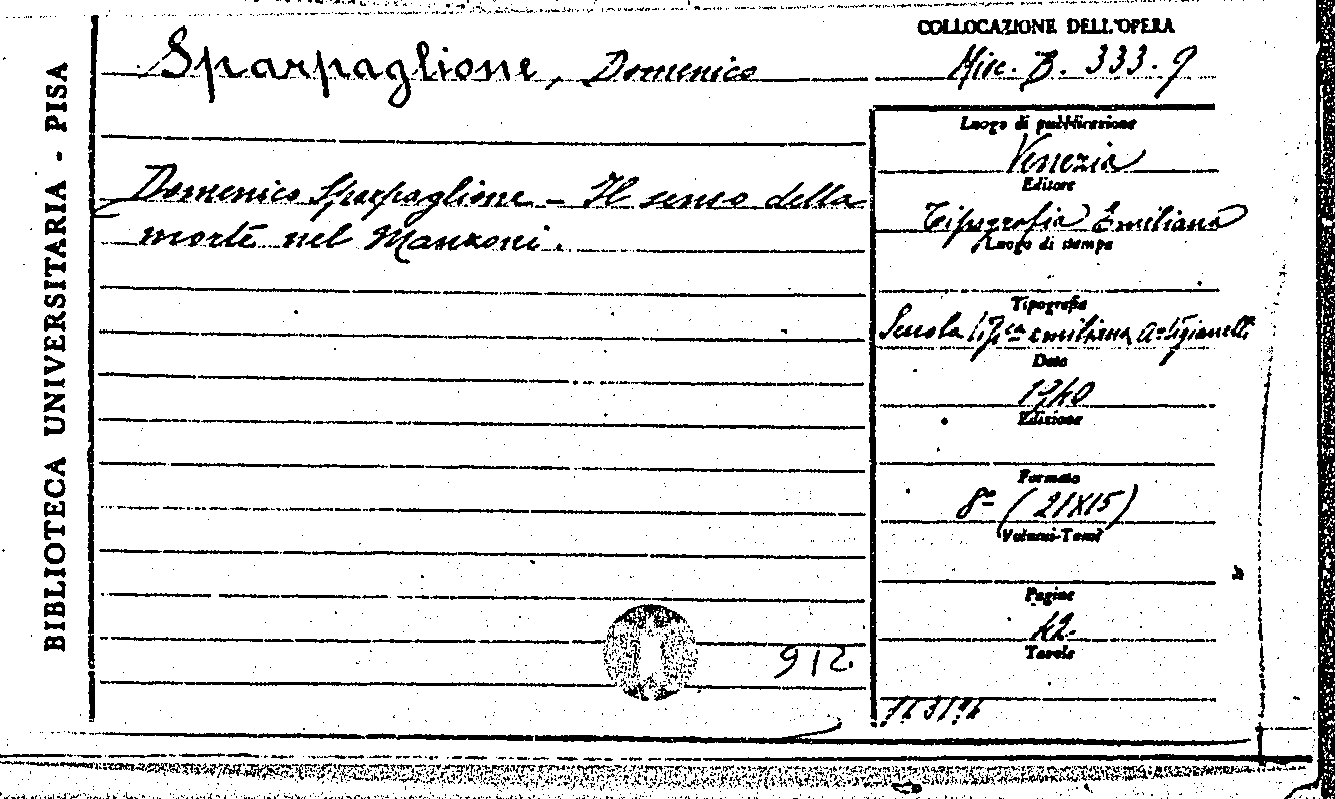 BIBLIOTECA UNIVERSITARIA - PISA
COLLOCAZIONE DELL'OPERA
Sparpaglione, Domenico
Misc. B. 333.9
Luogo di pubblicazione
Venezia
Editore
Domenico Sparpaglione - Il senso della
morte nel Manzoni.
Tipografia Emiliana
Luogo di stampa
Tipografia
Scuola tip.ca emiliana Artigianelli
Data
1940
Edizione
Formato
8° (21X15)
Volumi-Tomi
Pagine
42.
Tavole
912.